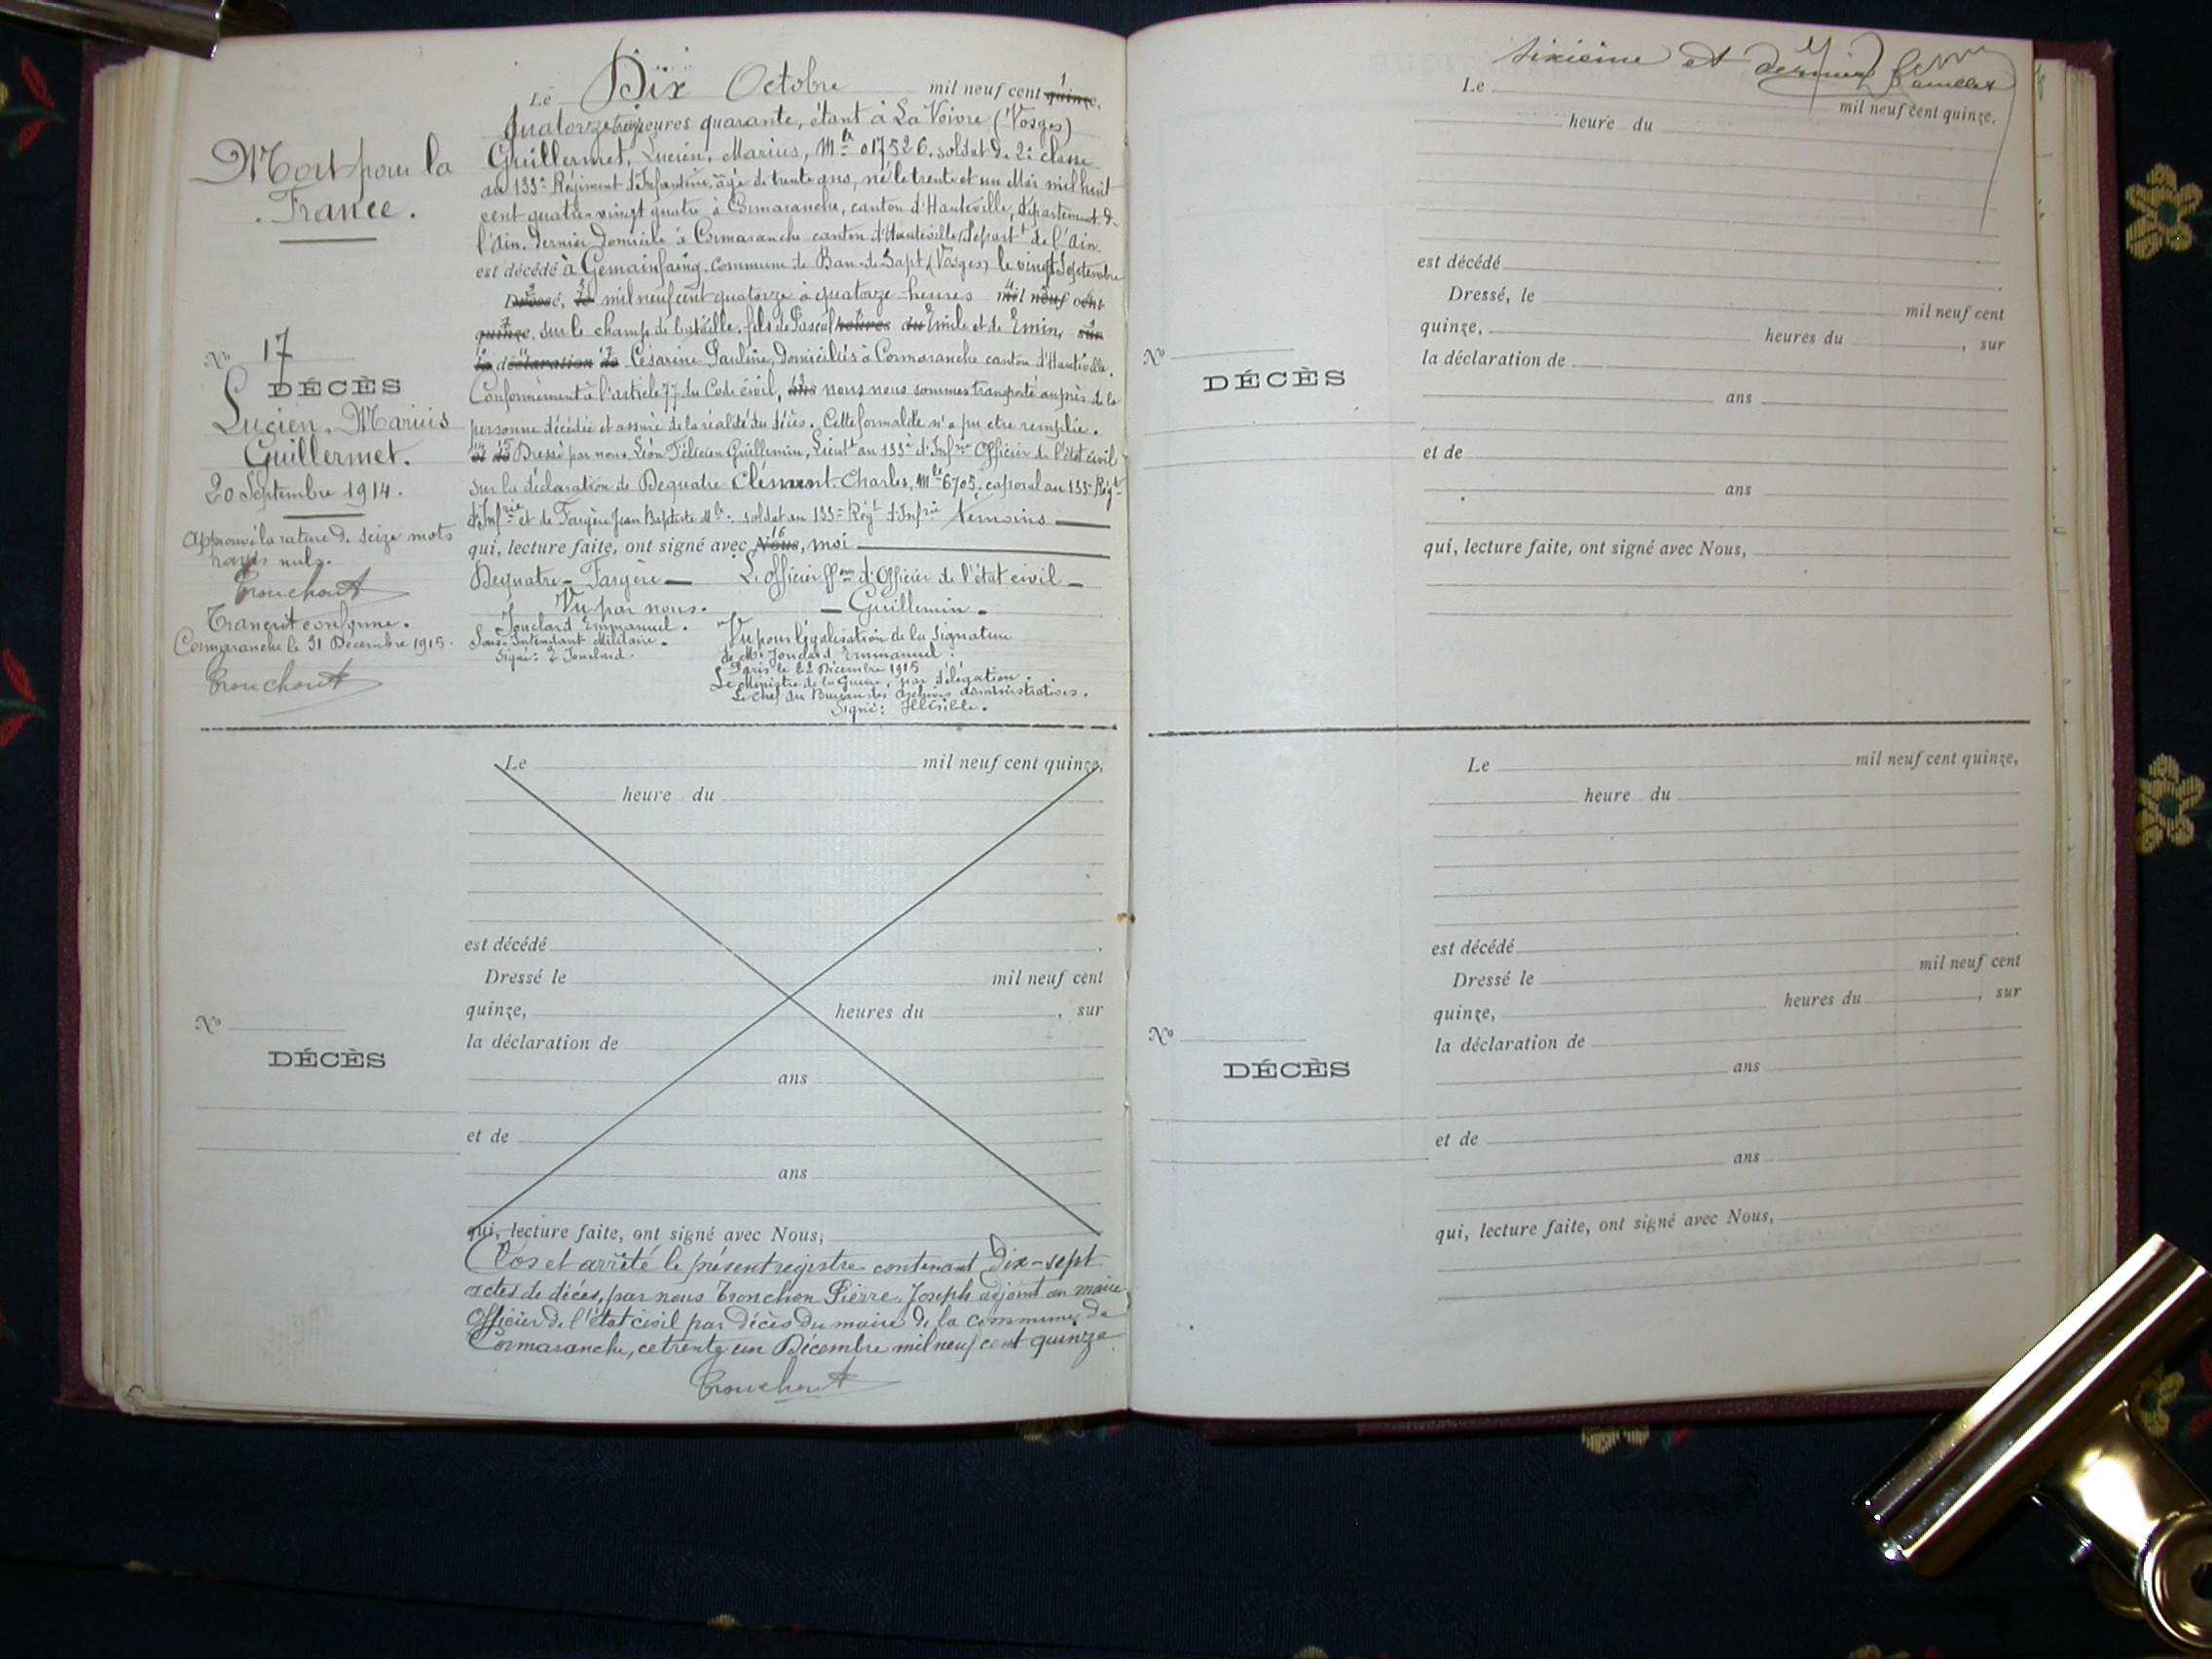 Mort pour la
France.
Nº 17
DÉCÈS
Lucien, Marius
Guillermet.
20 Septembre 1914.
Approuvé la rature de seize mots
rayés nuls.
Transcrit conforme.
Cormaranche le 31 Décembre 1915.
Le Dix Octobre mil neuf cent quinze,
Quatorze heures quarante, étant à La Voivre (Vosges)
Guillermet, Lucien, Marius, Mle 017526. soldat de 2e classe
au 133e Régiment d'Infanterie, âgé de trente ans, né le trente et un Mai mil huit
cent quatre-vingt quatre à Cormaranche, canton d'Hauteville, Département de
l'Ain. Dernier domicile à Cormaranche canton d'Hauteville, Départt de l'Ain
est décédé à Gemainfaing, commune de Ban-de-Sapt, (Vosges) le vingt Septembre
Dressé, le mil neuf cent quatorze à quatorze heures mil neuf cent
quinze, sur le champ de bataille. fils de Pascal heures du Emile et de Emin, sur
la déclaration de Césarine Pauline, domiciliés à Cormaranche canton d'Hauteville.
Conformément à l'article 77 du Code civil, ans nous nous sommes transporté auprès de la
personne décédée et assuré de la réalité du décès. Cette formalité n'a pu etre remplie.
et de Dressé par nous, Léon Félicien Guillemin, Lieutt au 133e d'Infrie Officier de l'état civil
sur la déclaration de Dequatre Clément-Charles, Mle 6705, caporal au 133e Régt
d'Infrie et de Fargère Jean Baptiste Mle. soldat au 133e Régt d'Infrie témoins
qui, lecture faite, ont signé avec Nous, moi
Dequatre - Fargère - L'officier ffons d'Officier de l'état civil -
Vu par nous. - Guillemin -
Jouclard Emmanuel.
Sous-Intendant Militaire.
Signé: E Jouclard.
Vu pour légalisation de la signature
de Mr Jouclard Emmanuel.
Paris le 22 Décembre 1915
Le Ministre de la Guerre, par délégation.
Le Chef du Bureau des Archives administratives.
Signé: Illisible.
Le mil neuf cent quinze,
heure du
est décédé
Dressé le mil neuf cent
quinze, heures du , sur
Nº
la déclaration de
DÉCÈS
ans
et de
ans
qui, lecture faite, ont signé avec Nous,
Clos et arrêté le présent registre contenant Dix-sept
actes de décès, par nous Tronchon Pierre, Joseph adjoint au maire
Officier de l'état civil par décès du maire de la commune de
Cormaranche, ce trente un Décembre mil neuf cent quinze
sixième et dernier feuillet
Le mil neuf cent quinze,
heure du
est décédé
Dressé, le mil neuf cent
quinze, heures du , sur
Nº
la déclaration de
DÉCÈS
ans
et de
ans
qui, lecture faite, ont signé avec Nous,
Le mil neuf cent quinze,
heure du
est décédé
Dressé le mil neuf cent
quinze, heures du , sur
Nº
la déclaration de
DÉCÈS
ans
et de
ans
qui, lecture faite, ont signé avec Nous,